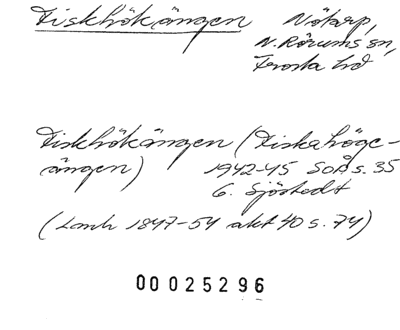 Fiskhökängen Nötarp,
N. Rörums sn,
Frosta hd
Fiskhökängen (Fiskahöge-
ängen) 1942-45 SOÅ s. 35
G. Sjöstedt
(Lanh 1847-54 akt 40 s. 74)
00025296